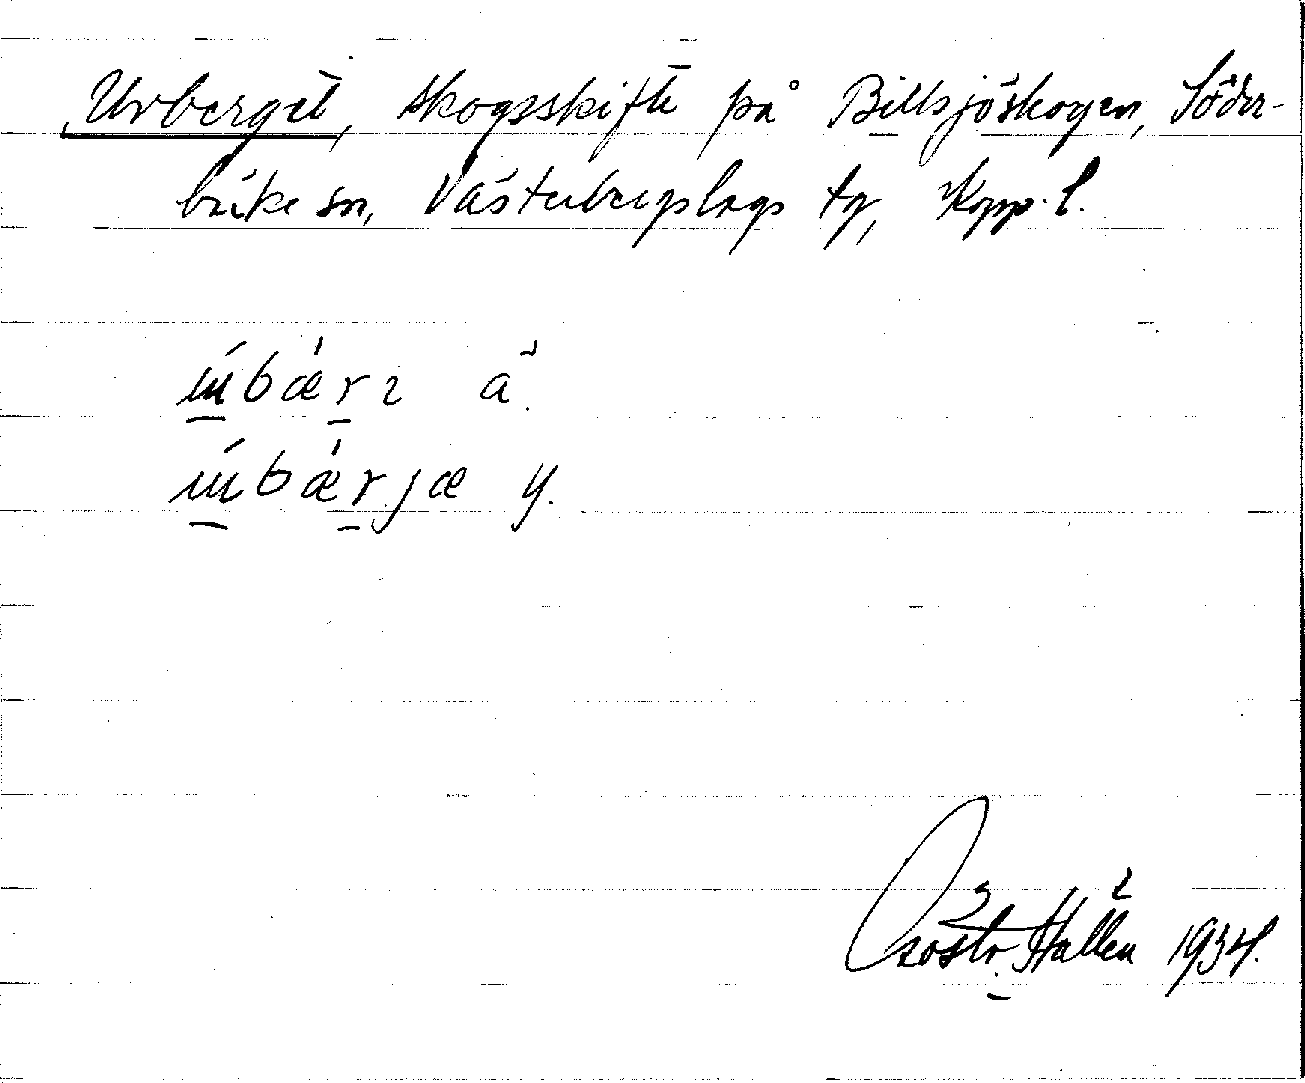 Urberget, skogsskifte på Billsjöskogen, Söder-
bärke sn, Västerbergslags tg, Kopp. l.
ä.
y.
Hallén 1934.